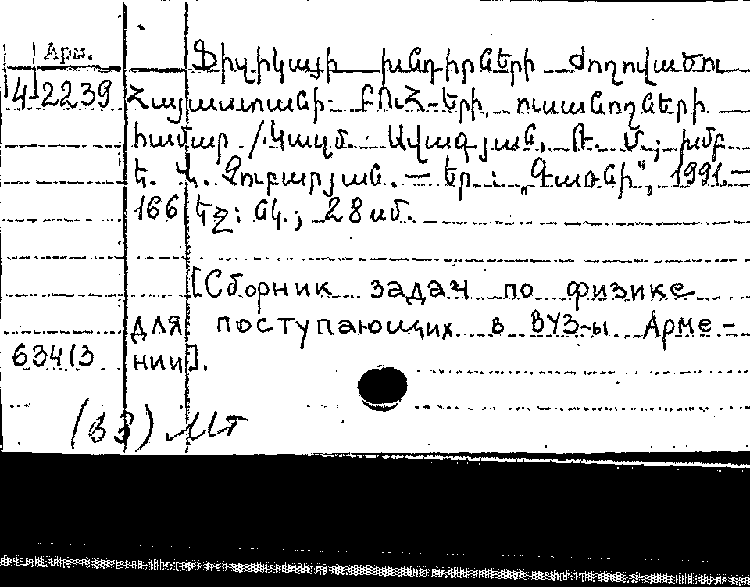 Арм.
Ֆիզիկայի խնդիրների ժողովածու
4-2239 Հայաստանի ԲՈՒՀ-երի ուսանողների
համար /Կազմ. Ավագյան, Ռ. Մ.; խմբ
Է. Ղ. Չուբարյան. — Եր.: „Գառնի“, 1991.—
166 էջ: նկ.; 28 սմ.
[Сборник задач по физике
для поступающих в ВУЗ-ы Арме-
63413 нии].
(83) Мт